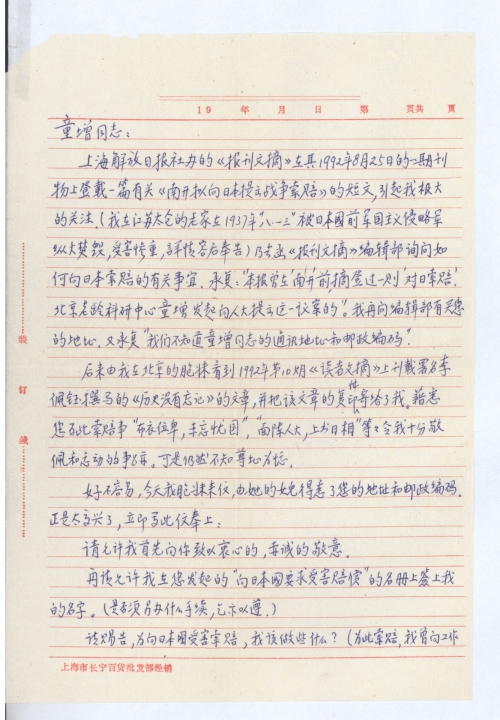 19 年 月 日 第 页共 页
童增同志：
上海解放日报社办的《报刊文摘》在其1992年8月25日的一期刊
物上登载一篇有关《南开拟向日本提出战争索赔》的短文，引起我极大
的关注。（我在江苏太仓的老家在1937年“八一三”被日本国前军国主义侵略军
纵火焚毁，受害惨重，详情容后奉告）乃去函《报刊文摘》编辑部询问如
何向日本索赔的有关事宜。承复：“本报曾在‘南开’前摘登过一则‘对日索赔’
北京老龄科研中心童增发起向人大提出这一议案的”。我再问编辑部有关您
的地址，又承复“我们不知道童增同志的通讯地址和邮政编码”。
后来由我在北京的胞妹看到1992年第10期《读者文摘》上刊载署名李
佩钰撰写的《历史没有忘记》的文章，并把该文章的复印件寄给了我。藉悉
您为此索赔事“布衣位卑，未忘忧国”，“面陈人大，上书日相”等等令我十分敬
佩和感动的事。可是仍然不知尊址为憾。
好不容易，今天我胞妹来信，由她的处得悉了您的地址和邮政编码。
正是太高兴了，立即写此信奉上：
请允许我首先向你致以衷心的，赤诚的敬意。
再请允许我在您发起的“向日本国要求受害赔偿”的名册上签上我
的名字。（是否须另办什么手续，乞示以遵。）
请赐告，为向日本国受害索赔，我该做些什么？（为此索赔，我曾向工作
上海市长宁百货批发部经销
装
订
线